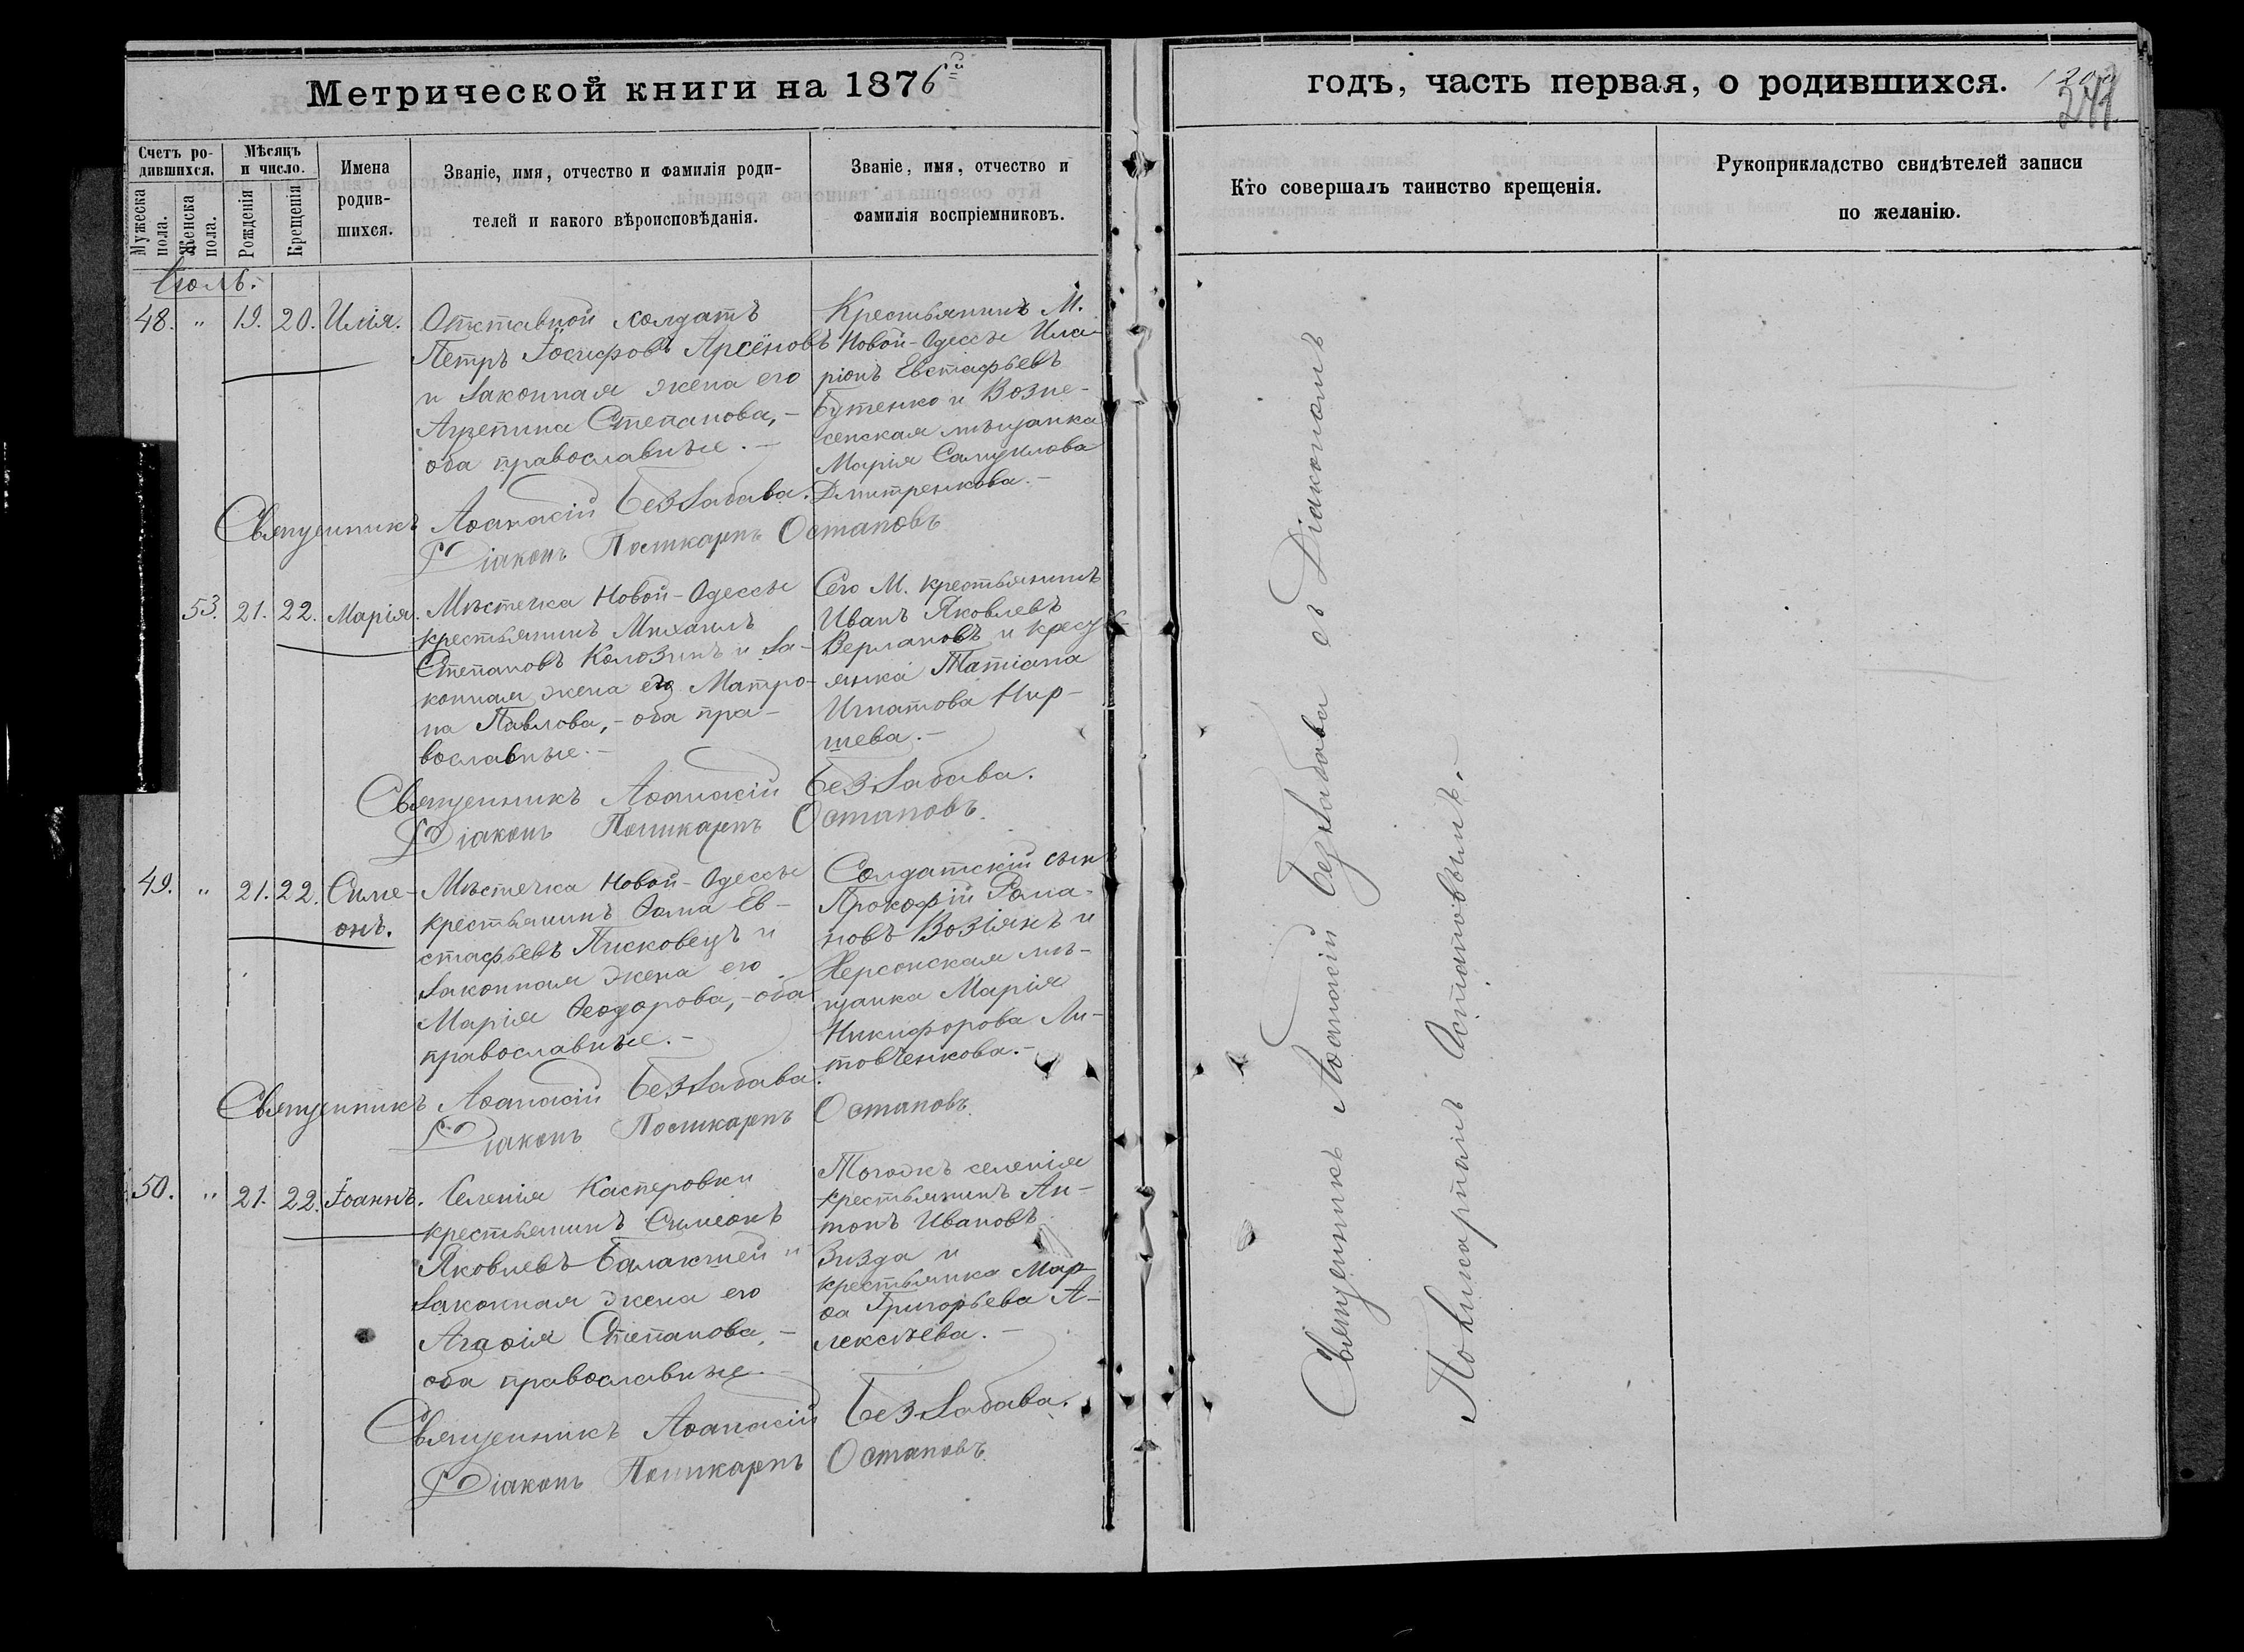 Метрической книги на 1876й
годъ, часть первая, о родившихся.
Счетъ ро-
дившихся.
Мужеска
пола.
Женска
пола.
Мѣсяцъ
и число.
Рожденія
Крещенія
Имена
родив-
шихся.
Званіе, имя, отчество и фамилія роди-
телей и какого вѣроисповѣданія.
Званіе, имя, отчество и
фамилія воспріемниковъ.
Кто совершалъ таинство крещенія.
Рукоприкладство свидѣтелей записи
по желанію.
Іюль.
48. " 19. 20. Илія.
Отставной солдатъ
Петръ Іосифовъ Арсёновъ
и законная жена его
Агрепина Степанова,-
оба православные.-
Крестьянинъ М.
Новой-Одессы Ила-
ріонъ Евстафьевъ
Бутенко и Возне-
сенская мѣщанка
Марія Самуилова
Дмитренкова.-
Священникъ Аѳанасій Беззабава.
Діаконъ Поликарпъ Остаповъ
53. 21. 22. Марія.
Мѣстечка Новой-Одессы
крестьянинъ Михаилъ
Степановъ Колозинъ и за-
конная жена его Матро-
на Павлова,- оба пра-
вославные.-
Сего М. крестьянинъ
Иванъ Яковлевъ
Верлановъ и крест
янка Татіана
Игнатова Нир-
шева.-
Священникъ Аѳанасій Беззабава.
Діаконъ Поликарпъ Остаповъ.
49. " 21. 22. Симе-
онъ.
Мѣстечка Новой-Одессы
крестьянинъ Ѳома Ев-
стафьевъ Писковецъ и
законная жена его
Марія Ѳеодорова,- оба
православные.-
Солдатскій сынъ
Прокофій Рома-
новъ Возіянъ и
Херсонская мѣ-
щанка Марія
Никифорова Ли-
товченкова.-
Священникъ Аѳанасій Беззабава.
Діаконъ Поликарпъ Остаповъ.
50. " 21. 22. Іоаннъ.
Селенія Касперовки
крестьянинъ Симеонъ
Яковлевъ Балакшей и
законная жена его
Агаѳія Степанова,-
оба православные.-
Тогожъ селенія
крестьянинъ Ан-
тонъ Ивановъ
Визда и
крестьянка Мар
ѳа Григорьева А-
лексѣева.-
Священникъ Аѳанасій Беззабава.
Діаконъ Поликарпъ Остаповъ.
Священникъ Аѳанасій Беззабава съ Діакономъ
Поликарпомъ Остаповымъ.-